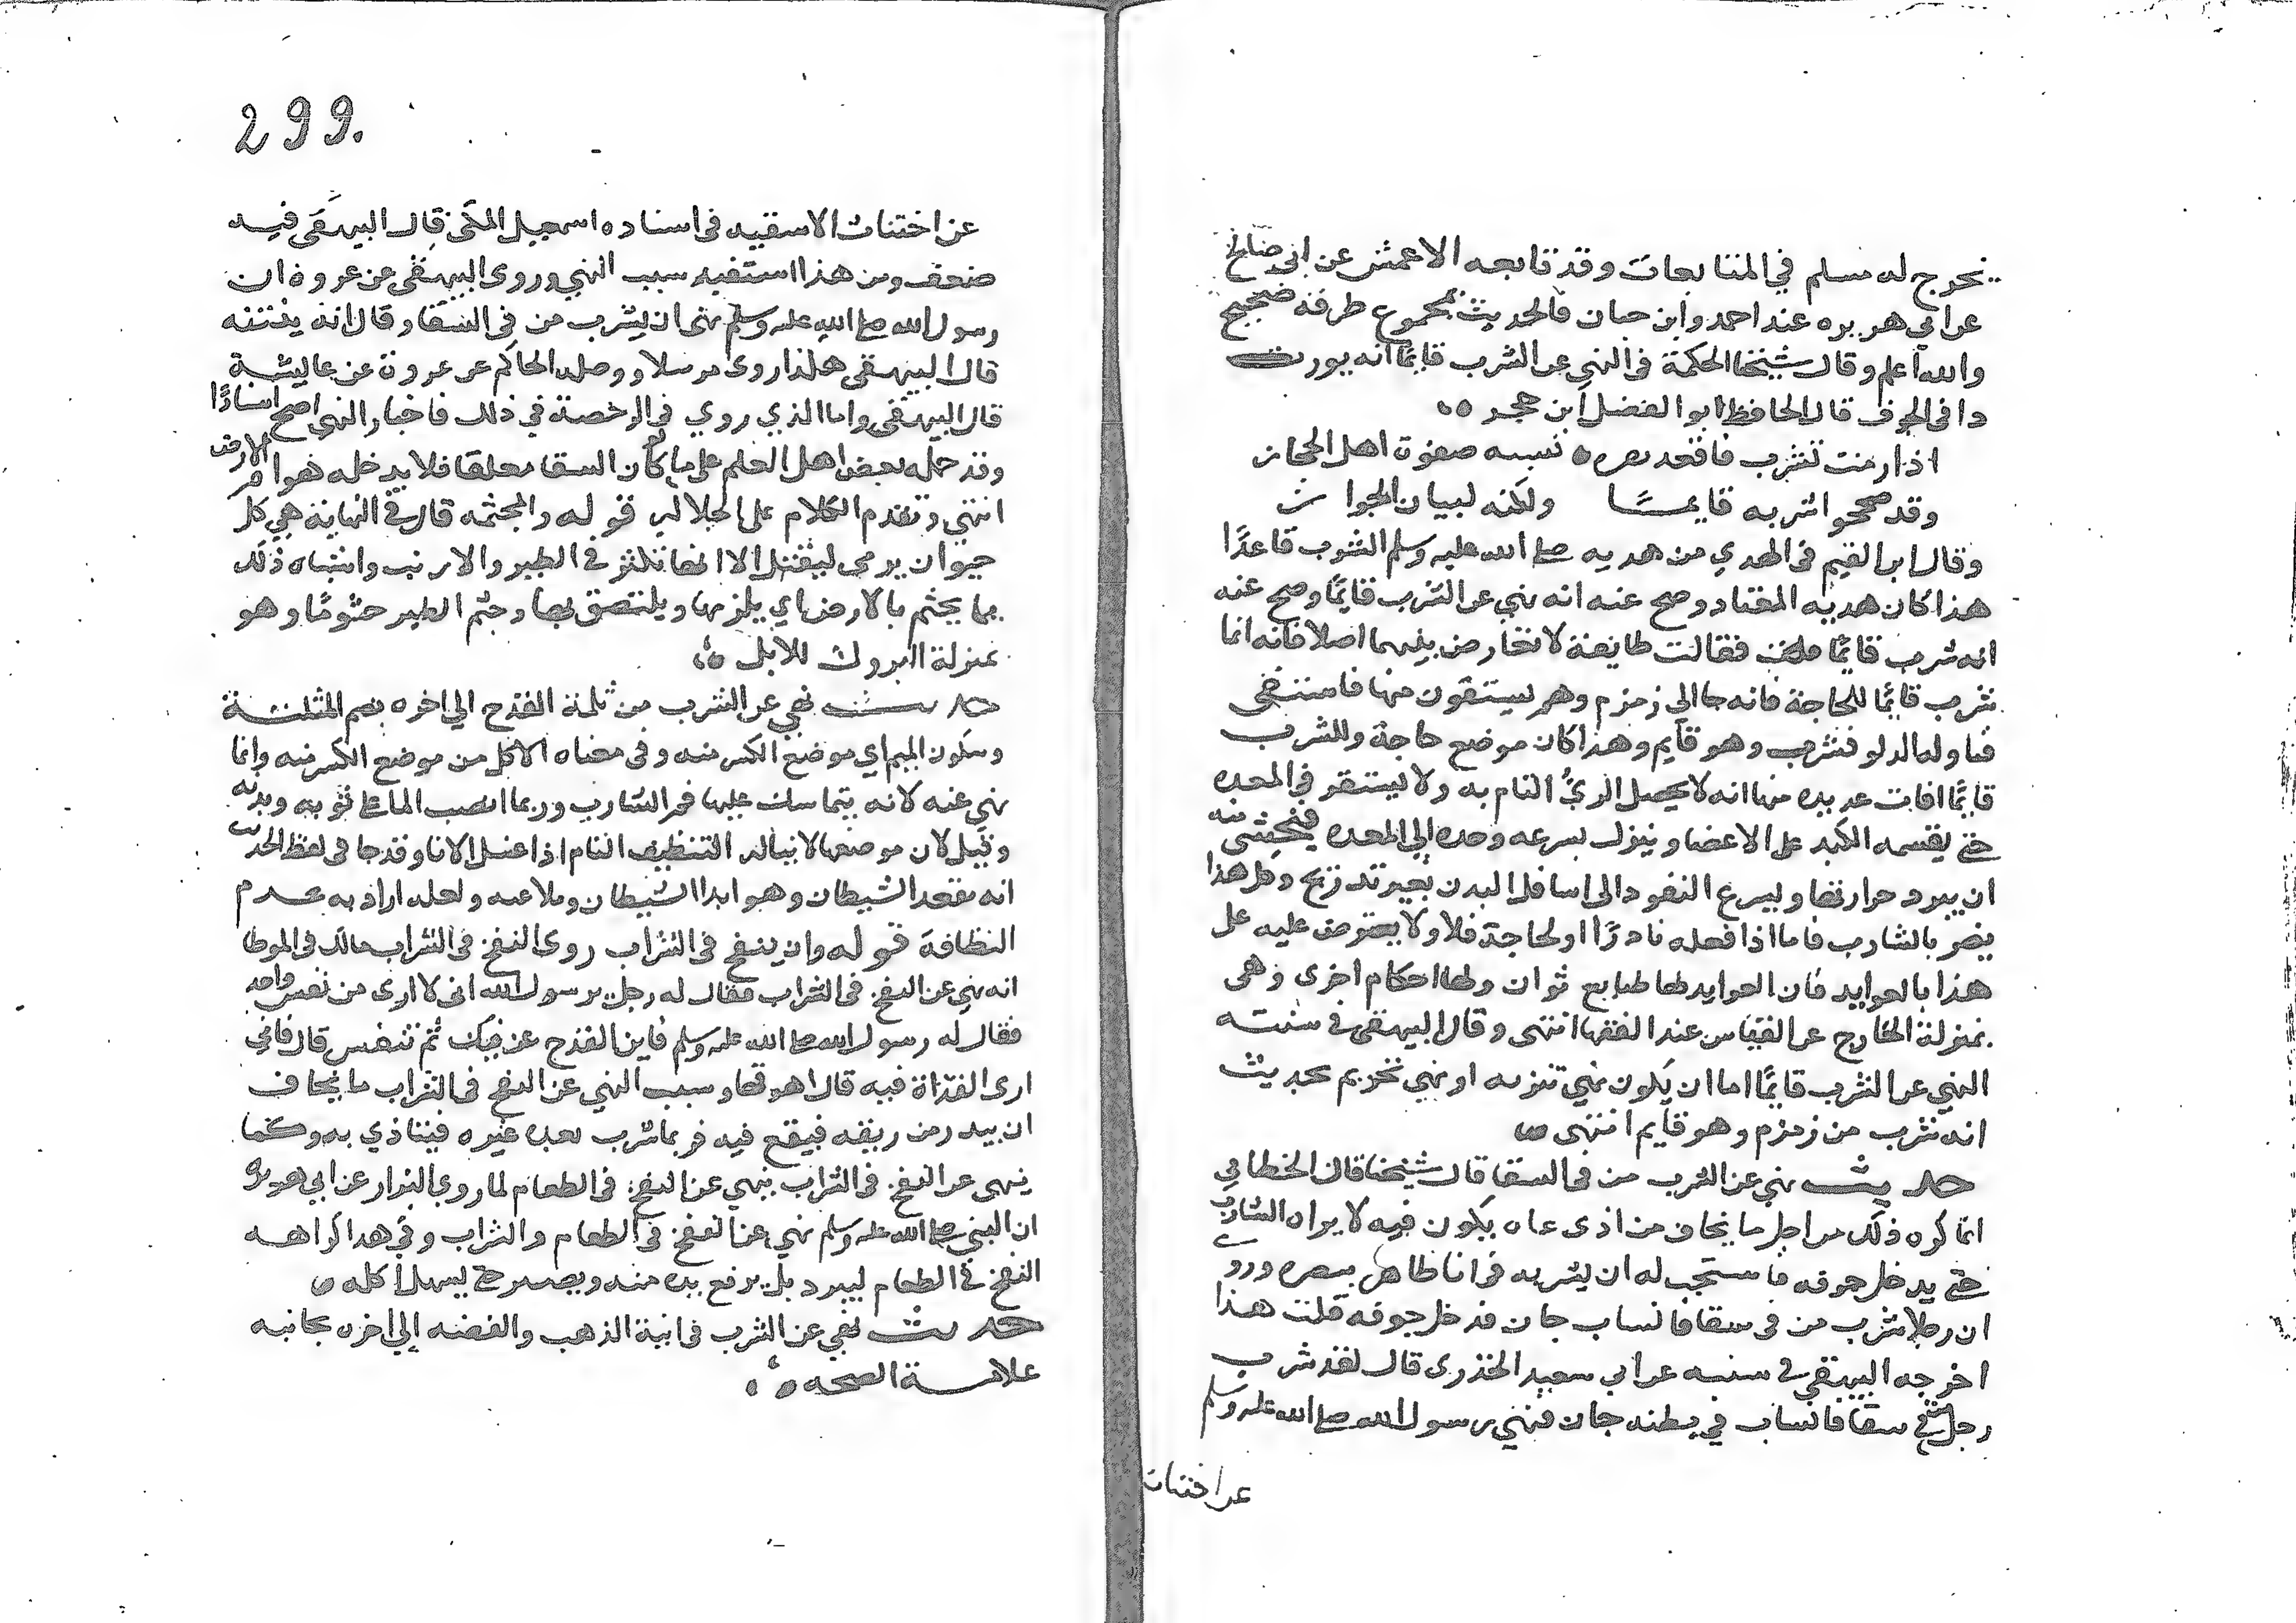 يخرج له مسلم في المتابعات وقد تابعه الاعمش عن ابي صالح
عن ابي هريره عند احمد وابن حبان فالحديث بمجموع طرقه صحيح
والله اعلم وقال شيخنا الحكمة في النهي عن الشرب قايمًا انه يورث
دا في الجوف قال الحافظ ابو الفضل ابن حجر
اذا رمت تشرب فاقعد تفز ه نسبه صفوة اهل الحجاز
وقد صححوا شربه قايمًا ولكنه لبيان الجواز
وقال ابن القيم في الهدي من هديه صلى الله عليه وسلم الشرب قاعدًا
هذا كان هديه المعتاد وصح عنه انه نهي عن الشرب قايمًا وصح عنه
انه شرب قايمًا فقالت طايفة لا تعارض بينهما اصلا فانه انما
شرب قايمًا للحاجة فانه جا الى زمزم وهم يستقون منها فاستسقى
فناوله الدلو فشرب وهو قايم وهذا كان موضع حاجة وللشرب
قايمًا افات عديده منها انه لا يحصل الريُّ التام به ولا يستقر في المعده
حتى يقسمه الكبد على الاعضا وينزل بسرعه وحده الى المعده فيخشى منه
ان يبرد حرارتها ويسرع النفود الى اسافل البدن بغير تدريج وكل هذا
يضر بالشارب فاما اذا فعله نادرًا او لحاجة فلا ولا يعترض عليه على
هذا بالعوايد فان العوايد لها طبايع ثوان ولها احكام اخرى وهى
بمنزلة الخارج عن القياس عند الفقها انتهى وقال البيهقى في سننه
النهي عن الشرب قايمًا اما ان يكون نهي تنزيه او نهي تحريم بحديث
انه شرب من زمزم وهو قايم انتهى
حديث نهي عن الشرب من في السقا قال شيخنا قال الخطابي
انما كره ذلك من اجل ما يخاف من اذى عاه يكون فيه لا يراه الشارب
حتى يدخل جوفه فاستحب له ان يشربه في انا ظاهر يبصره وروى
ان رجلا شرب من في سقا فانساب جان فدخل جوفه قلت هذا
اخرجه البيهقي في سننه عن ابي سعيد الخذرى قال لقد شرب
رجل من في سقا فانساب في بطنه جان فنهي رسول الله صلى الله عليه وسلم
عن اختنات
299.
عن اختنات الاسقيه في اسناده اسمعيل المكى قال البيهقى فيه
ضعف ومن هذا استفيد سبب النهي وروى البيهقى عن عروة ان
رسول الله صلى الله عليه وسلم نهى ان يشرب من في السقا وقال انه ينتنه
قال البيهقى هكذا روى مرسلا ووصله الحاكم عن عروة عن عايشة
قال البيهقى واما الذي روي في الرخصة في ذلك فاخبار النهي اصح اسنادًا
وقد حمله بعض اهل العلم على ما لو كان السقا معلقا فلا يدخله هوام الارض
انتهي وتقدم الكلام على الجلاله قوله والمجثمه قال في النهاية هي كل
حيوان يرمى ليقتل الا انها تكثر في الطير والارنب واشباه ذلك
مما يجثم بالارض اي يلزمها ويلتصق بها وجثم الطير جثومًا وهو
بمنزلة البروك للابل
حديث نهي عن الشرب من ثلمة القدح الي اخره بضم المثلثة
وسكون الميم اي موضع الكسر منه وفي معناه الاكل من موضع الكسر منه وانما
نهي عنه لانه يتماسك عليها فم الشارب وربما انصب الما على ثوبه وبدنه
وقيل لان موضعها لا يناله التنظيف التام اذا غسل الانا وقد جا في لفظ الحديث
انه مقعد الشيطان وهو ابدا الشيطان وملاعبه ولعله اراد به عدم
النظافة قوله وان ينفخ في الشراب روى النفخ في الشراب مالك في الموطا
انه نهي عن النفخ في الشراب فقال له رجل يرسول الله انى لا اروى من نفس واحد
فقال له رسول الله صلى الله عليه وسلم فابن القدح عن فيك ثم تنفس قال فاني
ارى القذاة فيه قال اهرقها وسبب النهي عن النفخ في الشراب ما يخاف
ان يبدر من ريقه فيقع فيه فربما شرب بعده غيره فيتاذي به وكما
ينهى عن النفخ في الشراب ينهي عن النفخ في الطعام لما روي البزار عن ابي هريره
ان النبي صلى الله عليه وسلم نهي عن النفخ في الطعام والشراب وفي هذا كراهه
النفخ في الطعام ليبرد بل يرفع يده منه ويصبر حتى يسهل اكله
حديث نهي عن الشرب في انية الذهب والفضه إلي اخره بجانبه
علامة الصحه